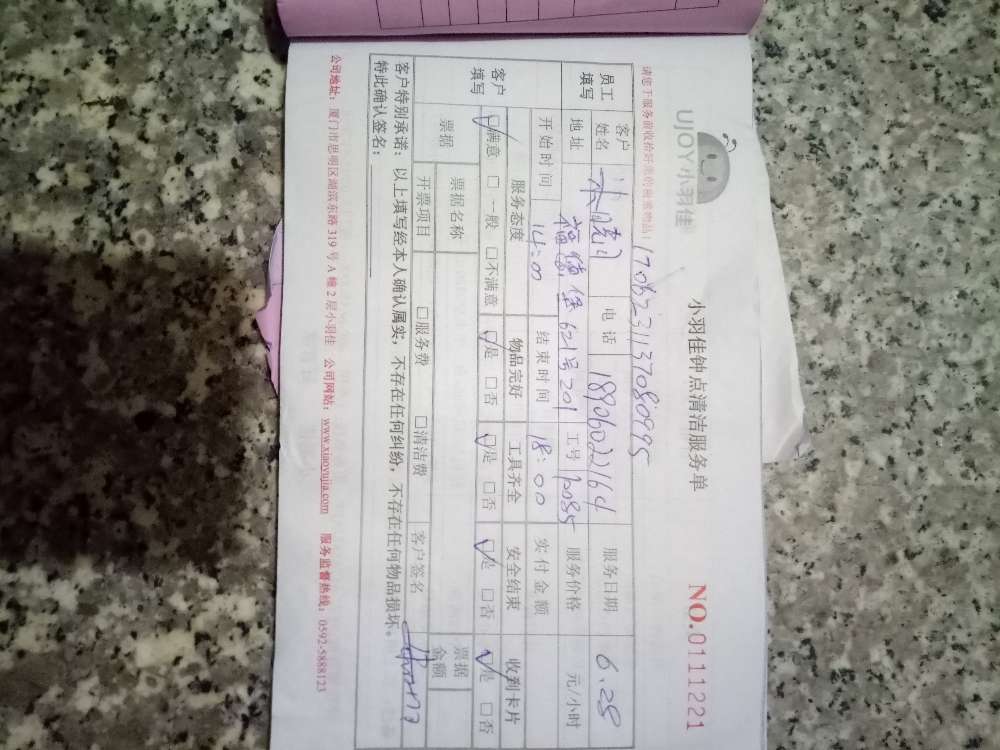 UJOY小羽佳
小羽佳钟点清洁服务单
NO.0111221
请您于服务前收拾好贵的物品!
1706231137080995
员工填写
客户姓名
电话 18906022164
服务日期 6.28
地址 621号201
工号
服务价格 元/小时
开始时间 14:00
结束时间 18:00
实付金额
客户填写
服务态度 物品完好 工具齐全 安全结束 收到卡片
☑满意 □一般 □不满意 ☑是 □否 ☑是 □否 ☑是 □否 ☑是 □否
票据 票据名称 票据金额
开票项目 □服务费 □清洁费 客户签名
客户特别承诺:以上填写经本人确认属实,不存在任何纠纷,不存在任何物品损坏。
特此确认签名:
公司地址:厦门市思明区湖滨东路319号A幢2层小羽佳 公司网站:www.xiaoyujia.com 服务监督热线:0592-5888123